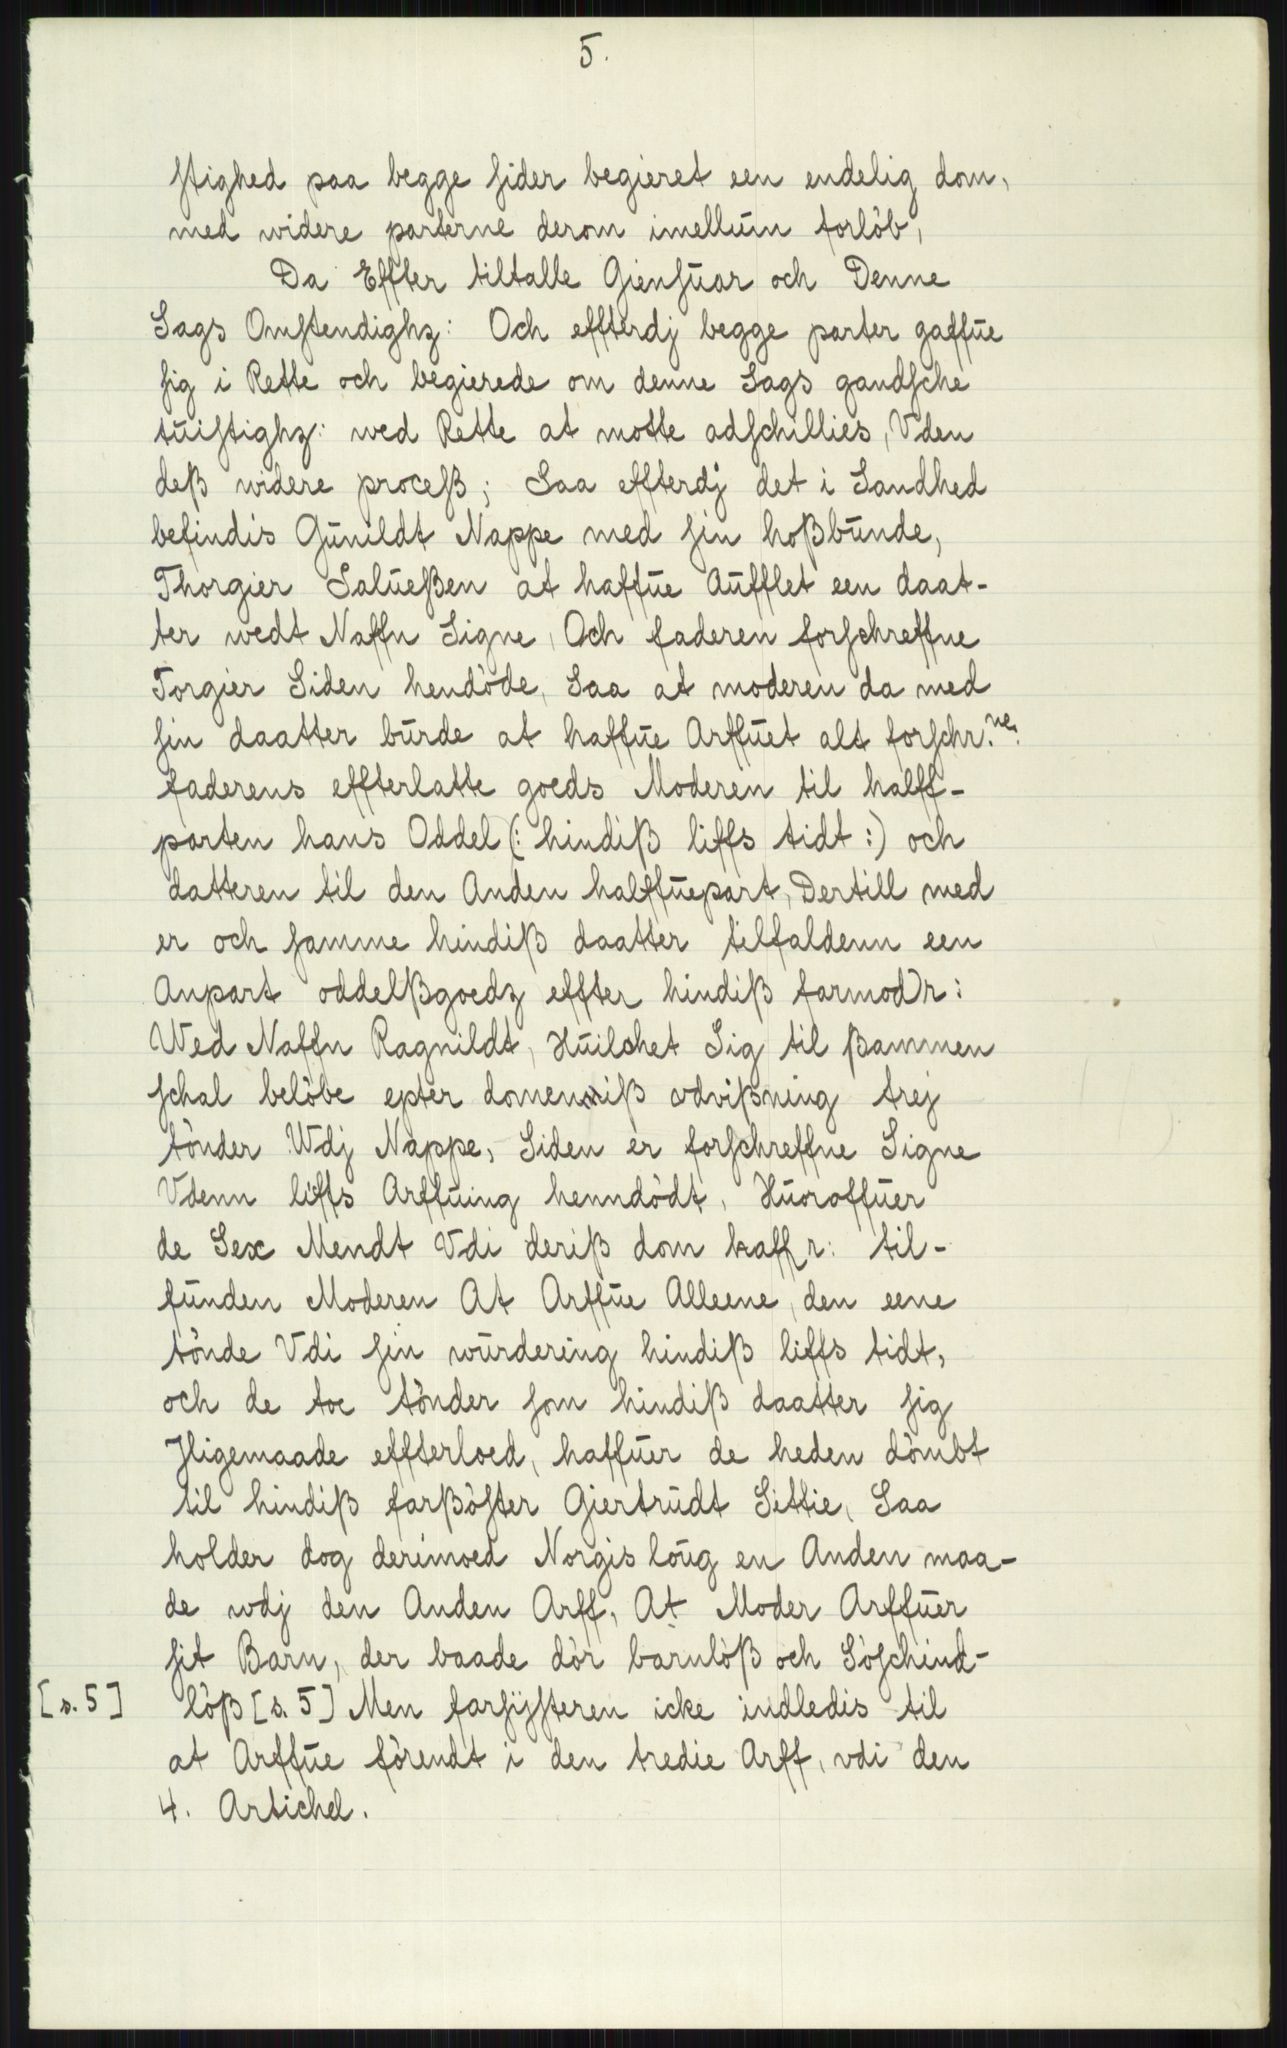 5.
stighed paa begge sider begieret een endelig dom,
med widere parterne derom imellum forlöb,
Da Effter tiltalle Giensuar och Denne
Sags Omstendighz: Och effterdj begge parter gaffue
sig i Rette och begierede om denne Sags gandsche
tuistighz: wed Rette at motte adschillies, Vden
deß widere proceß; Saa effterdj det i Sandhed
befindis Gunildt Nappe med sin hoßbunde,
Thorgier Salueßen at haffue Aufflet een daat-
ter wedt Naffn Signe, Och faderen forschreffne
Torgier Siden hendöde, Saa at moderen da med
sin daatter burde at haffue Arffuet alt forschr.ne
faderens effterlatte goeds Moderen til halff-
parten hans Oddel (: hindiß liffs tidt :) och
datteren til den Anden halffuepart, Dertill med
er och samme hindiß daatter tilfaldenn een
Anpart oddelßgoedz effter hindiß farmodr:
Wed Naffn Ragnildt, Huilchet Sig til ßammen
schal belöbe epter domenniß vdvißning trej
tönder Wdj Nappe, Siden er forschreffne Signe
Vdenn liffs Arffuing henndödt, Huoroffuer
de Sex Mendt Vdi deriß dom haffr: til-
funden Moderen At Arffue Alleene, den eene
tönde Vdi sin wurdering hindiß liffs tidt,
och de toe tönder som hindiß daatter sig
Jligemaade effterloed, haffuer de heden dömbt
til hindiß farßöster Giertrudt Sittie, Saa
holder dog derimoed Norgis loug en Anden maa-
de wdj den Anden Arff, At Moder Arffuer
sit Barn, der baade dör barnlöß och Söschind-
[s. 5] löß [s. 5] Men farsÿsteren icke indledis til
at Arffue förendt i den tredie Arff, vdi den
4. Artichel.